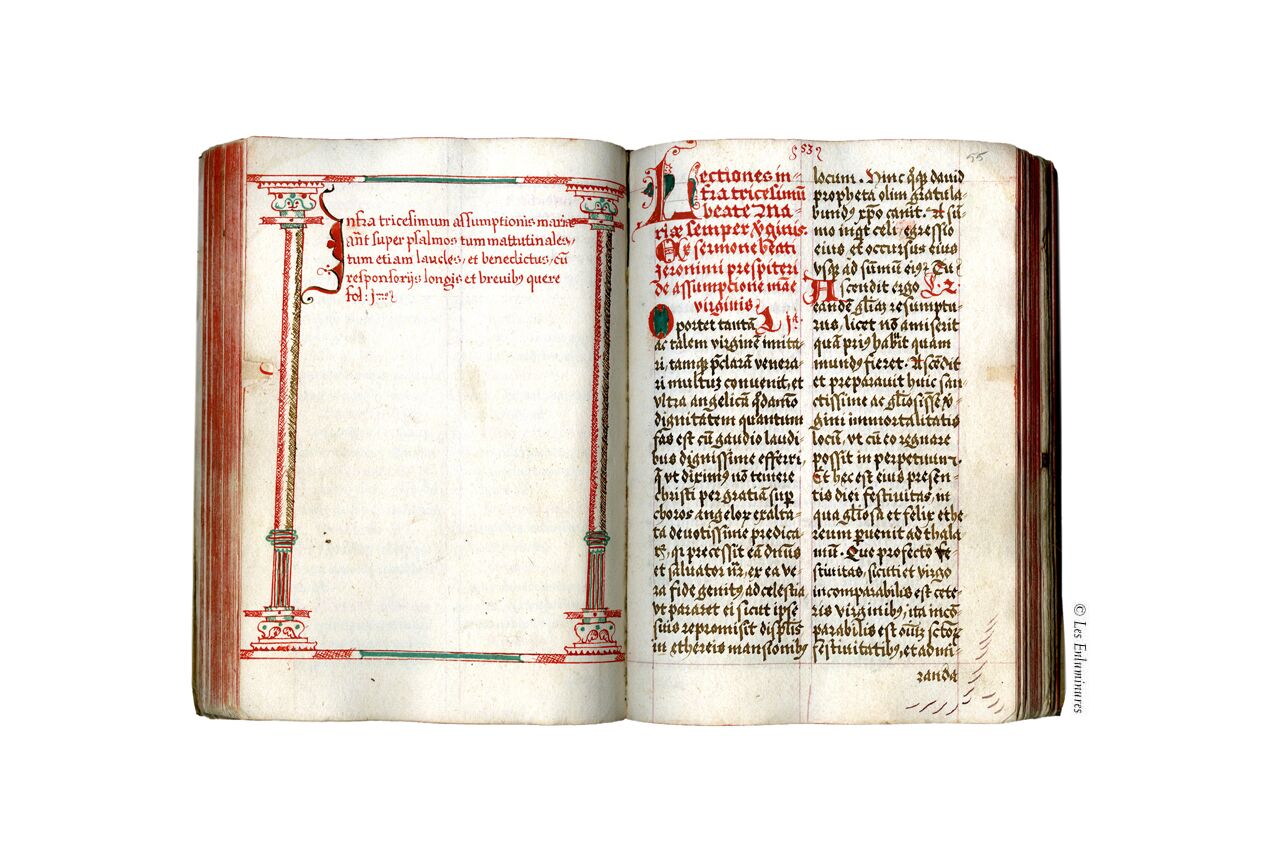 nfra tricesimum assumptionis marie
añt super psalmos tum mattutinales,
tum etiam laudes, et benedictus, cū
responsorijs longis et brevibꝰ quere
fol:
53
55
Lectiones in-
fra tricesimū
beate Ma-
riæ semper v̄ginis.
Ex sermone beati
Jeronimi prespiteri
de assumptione mariæ
virginis.
Oportet tantā
ac talem virginē imita-
ri, tamq̄ p̄claram venera-
ri multuȝ convenit, et
vltra angelicā q̄dāmō
dignitatem quantum
fas est cū gaudio laudi-
bus dignissime efferri,
q̄ vt diximꝰ nō temere
christi per gratiā sup̄
choros angeloꝝ exalta-
ta devotissime predica-
t̄, qi precessit eā dn̄us
et salvator nr̄, ex ea ve-
ra fide genitꝰ ad celestia
vt pararet ei sicut ipse
suis repromisit discip̄lis
in ethereis mansionibꝰ
locum. Hinc q̄q̄ david
propheta olim gratula-
bundꝰ xp̄o canit. A sū-
mo inqt celi egressio
eius, et occursus eius
vsq̄ ad sūmū eiꝰ. Tu
Ascendit ergo
eandē gl̄iaꝫ resumptu-
rus, licet nō amiserit
quā priꝰ habuit quam
mundꝰ fieret. Ascēdit
et preparavit huic san-
ctissime ac gl̄osissē v̄-
gini immortalitatis
locū, vt cū eo regnare
possit in perpetuum.
Et hec est eius presen-
tis diei festivitas, in
qua gl̄iosa et felix ethe-
reum p̄uenit ad thala-
mū. Que profecto fe-
stivitas, sicuti et virgo
incomparabilis est cete-
ris virginibꝰ, ita incō-
parabilis est oīuꝫ sctorꝫ
festivitatibꝰ, et admi-
randa
© Les Enluminures